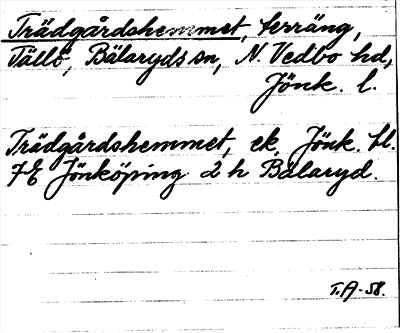 Trädgårdshemmet, terräng,
Tällö, Bälaryds sn, N. Vedbo hd,
Jönk. l.
Trädgårdshemmet, ek. Jönk. bl.
7E Jönköping 2 h Bälaryd.
T.A-58.